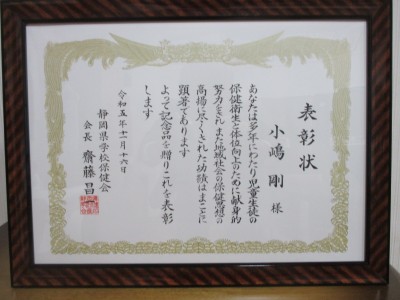 表彰状
小嶋剛 様
あなたは多年にわたり児童生徒の
保健衛生と体位向上のために献身的
努力をされまた地域社会の保健思想の
高揚に尽くされた功績はまことに
顕著であります
よって記念品を贈りこれを表彰
します
令和五年十一月十六日
静岡県学校保健会
会長 齋藤昌